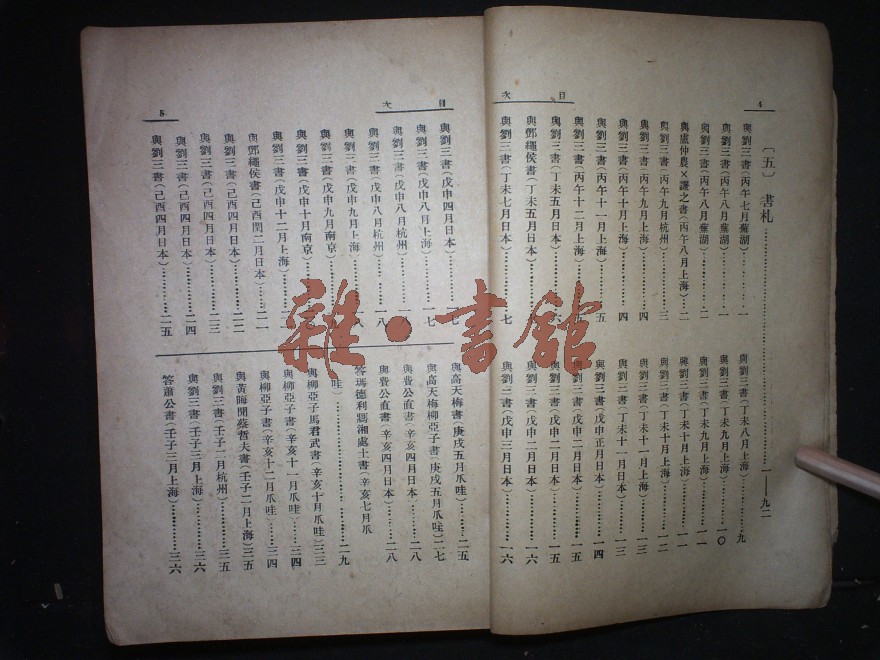 4
目次
〔五〕 書札…………一——九二
與劉三書(丙午七月蕪湖)……一
與劉三書(丙午八月蕪湖)……一
與劉三書(丙午八月蕪湖)……二
與盧仲農×謙之書(丙午八月上海)·二
與劉三書(丙午九月杭州)……三
與劉三書(丙午九月上海)……四
與劉三書(丙午十月上海)……四
與劉三書(丙午十一月上海)……五
與劉三書(丙午十二月上海)
與劉三書(丁未五月日本)
與鄧繩侯書(丁未五月日本)
與劉三書(丁未七月日本)……七
與劉三書(丁未八月上海)……九
與劉三書(丁未九月上海)……一〇
與劉三書(丁未九月上海)……一一
與劉三書(丁未十月上海)……一一
與劉三書(丁未十月上海)……一二
與劉三書(丁未十一月上海)……一三
與劉三書(丁未十一月日本)……一三
與劉三書(戊申正月日本)……一四
與劉三書(戊申二月日本)……一五
與劉三書(戊申二月日本)……一五
與劉三書(戊申二月日本)……一六
與劉三書(戊申三月日本)……一六
目次
5
與劉三書(戊申四月日本)
與劉三書(戊申八月上海)……一七
與劉三書(戊申八月杭州)
與劉三書(戊申八月杭州)……一八
與劉三書(戊申九月上海)……一八
與劉三書(戊申九月南京)
與劉三書(戊申十月南京)
與劉三書(戊申十二月上海)
與鄧繩侯書(己酉閏二月日本)……二一
與劉三書(己酉四月日本)……二二
與劉三書(己酉四月日本)……二三
與劉三書(己酉四月日本)……二四
與劉三書(己酉四月日本)……二五
與高天梅書(庚戌五月爪哇)……二五
與高天梅柳亞子書(庚戌五月爪哇)二七
與費公直書(辛亥四月日本)……二八
與費公直書(辛亥四月日本)……二八
答瑪德利瑪湘處士書(辛亥七月爪
哇)……二九
與柳亞子馬君武書(辛亥十月爪哇)三三
與柳亞子書(辛亥十一月爪哇)……三四
與柳亞子書(辛亥十二月爪哇)……三四
與黃晦聞蔡哲夫書(壬子二月上海)三五
與劉三書(壬子二月杭州)……三五
與劉三書(壬子三月上海)……三六
答蕭公書(壬子三月上海)……三六
雜·書館